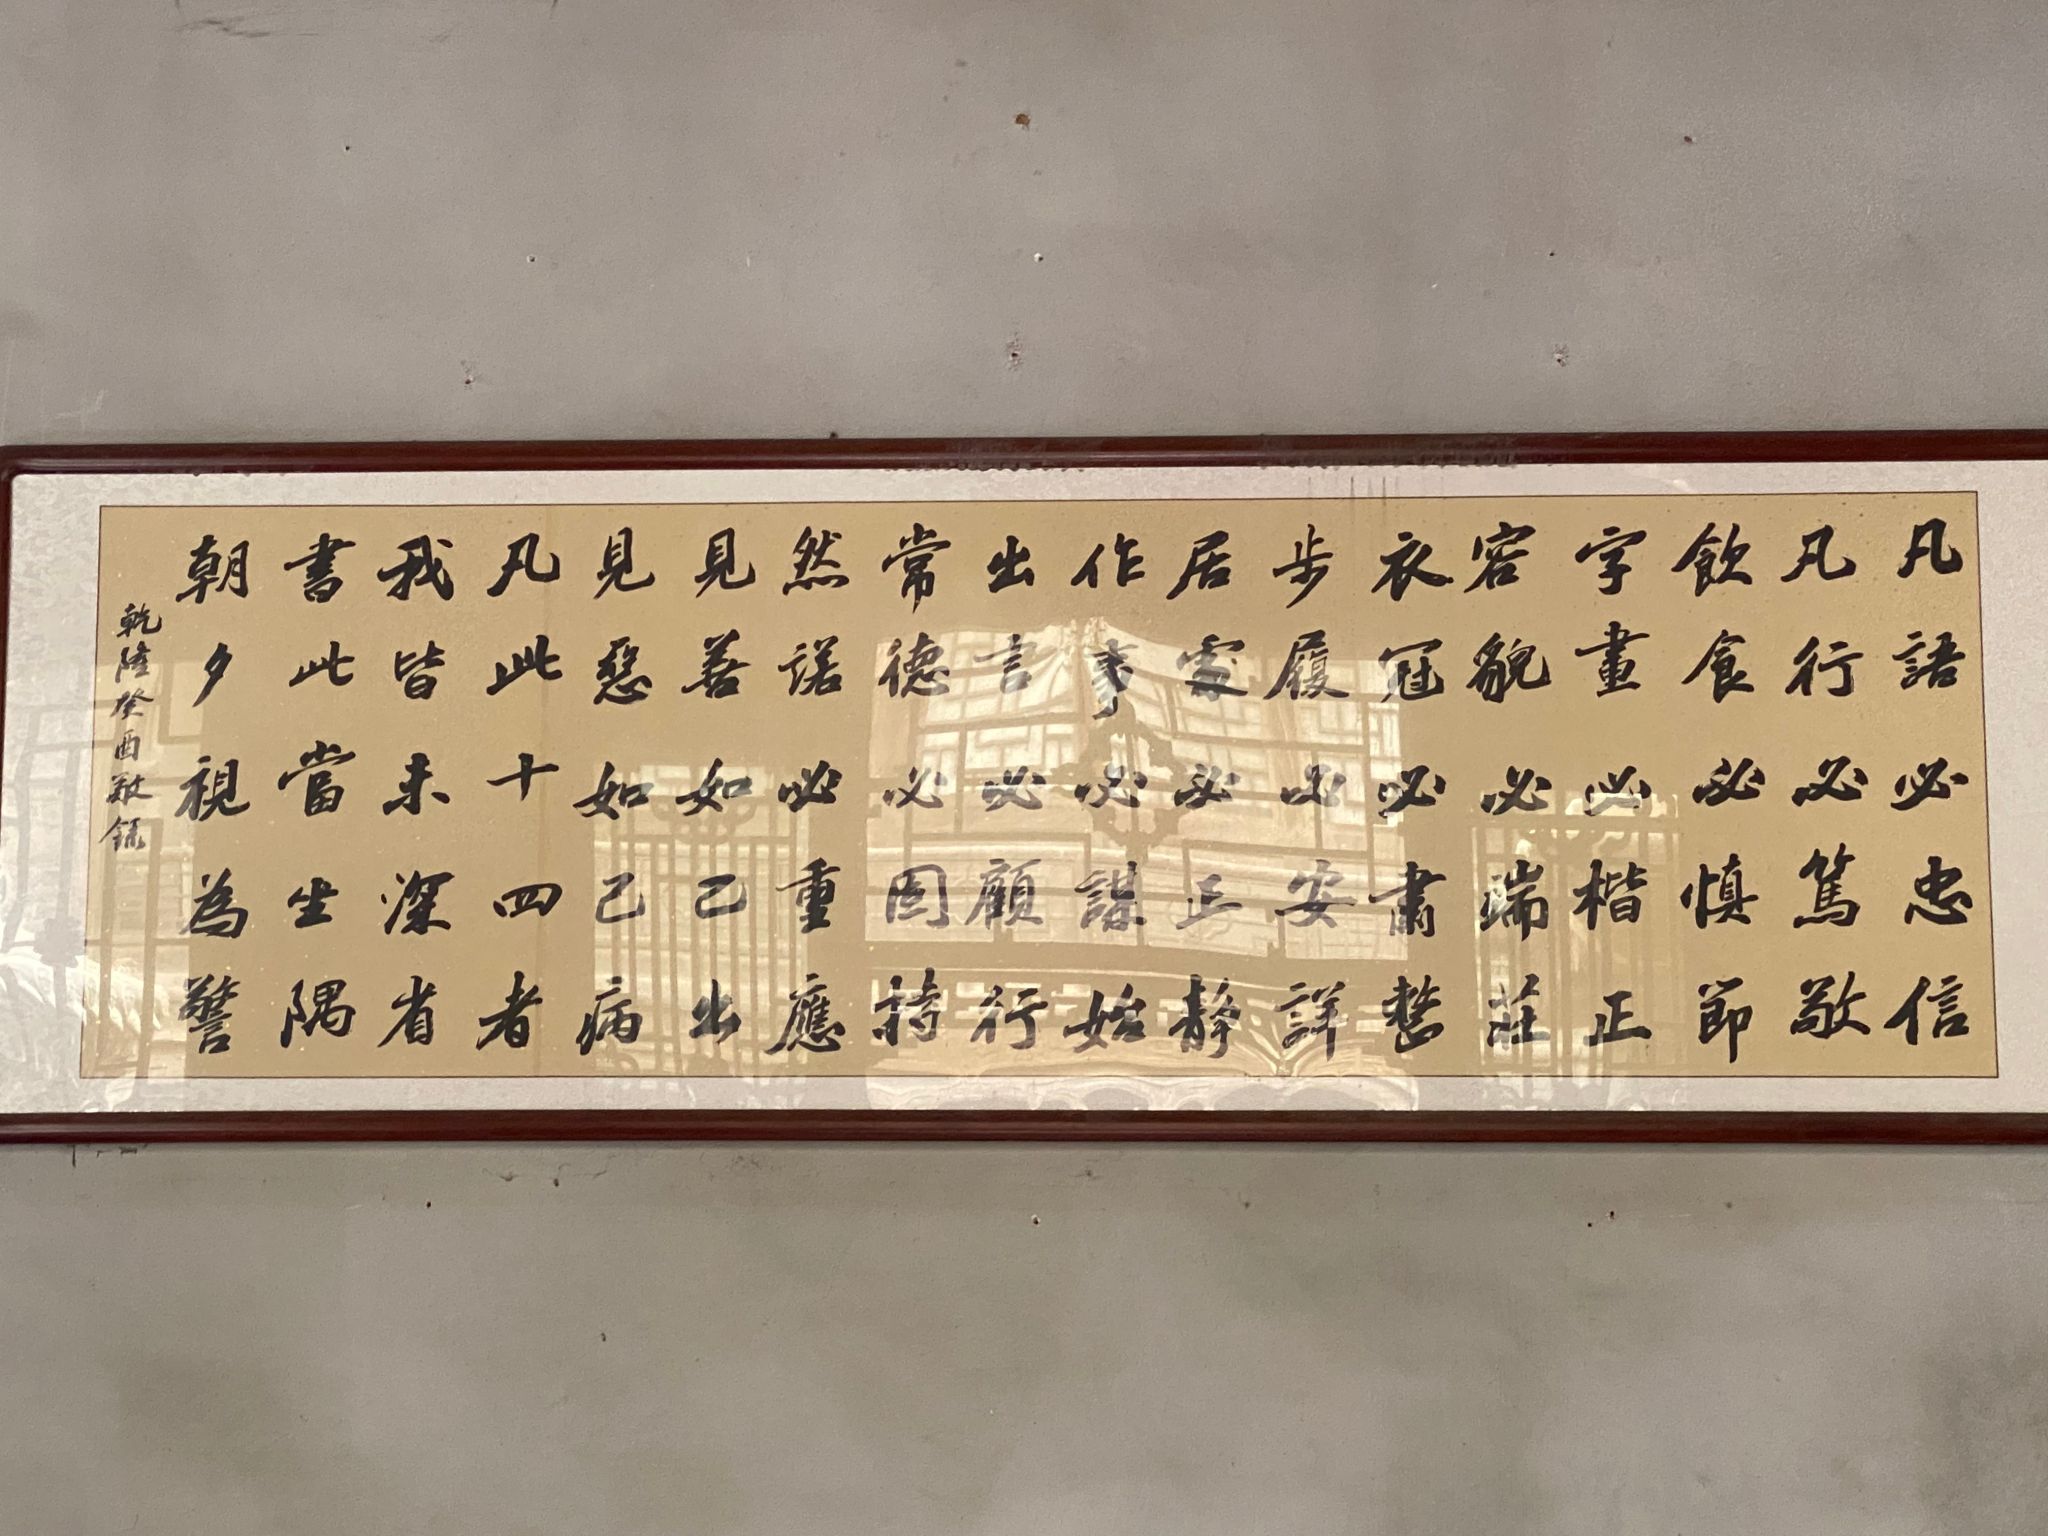 凡語必忠信
凡行必篤敬
飲食必慎節
字畫必楷正
容貌必端莊
衣冠必肅整
步履必安詳
居處必正靜
作事必謀始
出言必顧行
常德必固持
然諾必重應
見善如己出
見惡如己病
凡此十四者
我皆未深省
書此當坐隅
朝夕視為警
乾隆癸酉敬錄